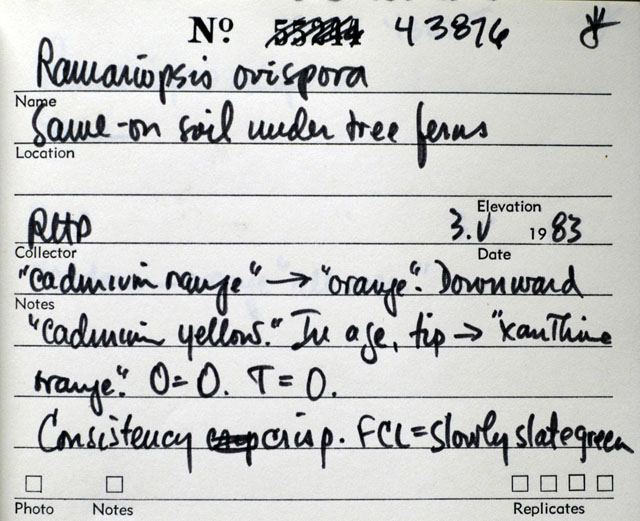 Nº 55244 43876
Ramariopsis ovispora
Name
Same - on soil under tree ferns
Location
Elevation
RHP 3.V 1983
Collector Date
"cadmium range" → "orange". Downward
Notes
"cadmium yellow." In age, tip → "xanthine
orange". O=O. T=O.
Consistency crisp. FCL=slowly slate green
Photo Notes Replicates